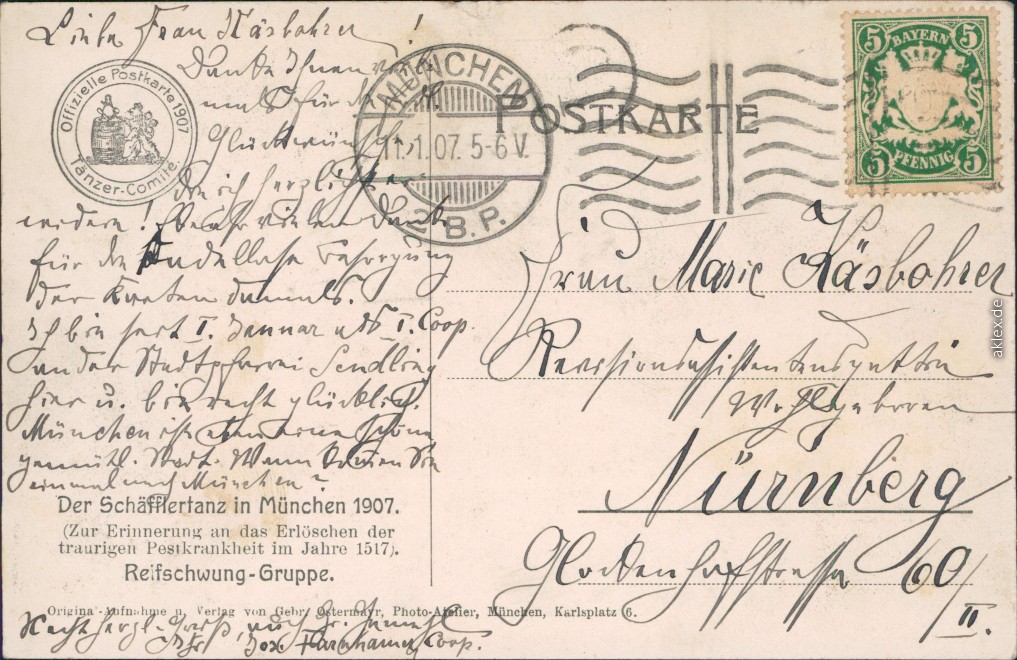 Liebe Frau Käsbohrer!
Danke Ihnen
für die
Glückwünsche,
die ich herzlichst
vielen Dank
für die
der Karten damals.
Ich bin seit 1. Januar als I. Coop.
an der Stadtpfarrei Sendling
hier u. bin recht glücklich.
München ist eben eine schöne
gemütl. Stadt. Wann kommen Sie
einmal nach München?
Offizielle Postkarte 1907
Tänzer-Comité
MÜNCHEN
11. 1. 07. 5-6 V.
2 B.P.
POSTKARTE
5 BAYERN 5
5 PFENNIG 5
Frau Marie Käsbohrer
Revisionsassistentensgattin
Wohlgeboren
Nürnberg
Glockenhofstrasse 60/
II.
Der Schäfflertanz in München 1907.
(Zur Erinnerung an das Erlöschen der
traurigen Pestkrankheit im Jahre 1517).
Reifschwung-Gruppe.
Original-Aufnahme u. Verlag von Gebr. Ostermayr, Photo-Atelier, München, Karlsplatz 6.
Recht herzl. Gruß auch Hr. Gemahl
Ihr Jos. Coop.
aklex.de